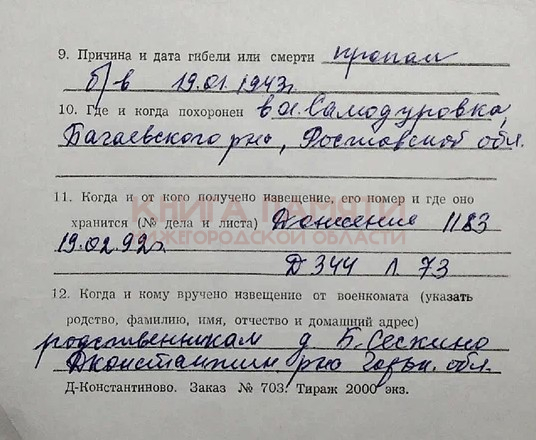 9. Причина и дата гибели или смерти пропал
б/в 19.01.1943г
10. Где и когда похоронен в с. Самодуровка,
Багаевского р-на, Ростовской обл.
11. Когда и от кого получено извещение, его номер и где оно
КНИГА ПАМЯТИ
хранится (№ дела и листа) Донесение 1183
НИЖЕГОРОДСКОЙ ОБЛАСТИ
19.02.92г.
Д 344 л 73
12. Когда и кому вручено извещение от военкомата (указать
родство, фамилию, имя, отчество и домашний адрес)
родственникам д Б. Сескино
Дконстантин р-на Горьк. обл.
Д-Константиново. Заказ № 703. Тираж 2000 экз.